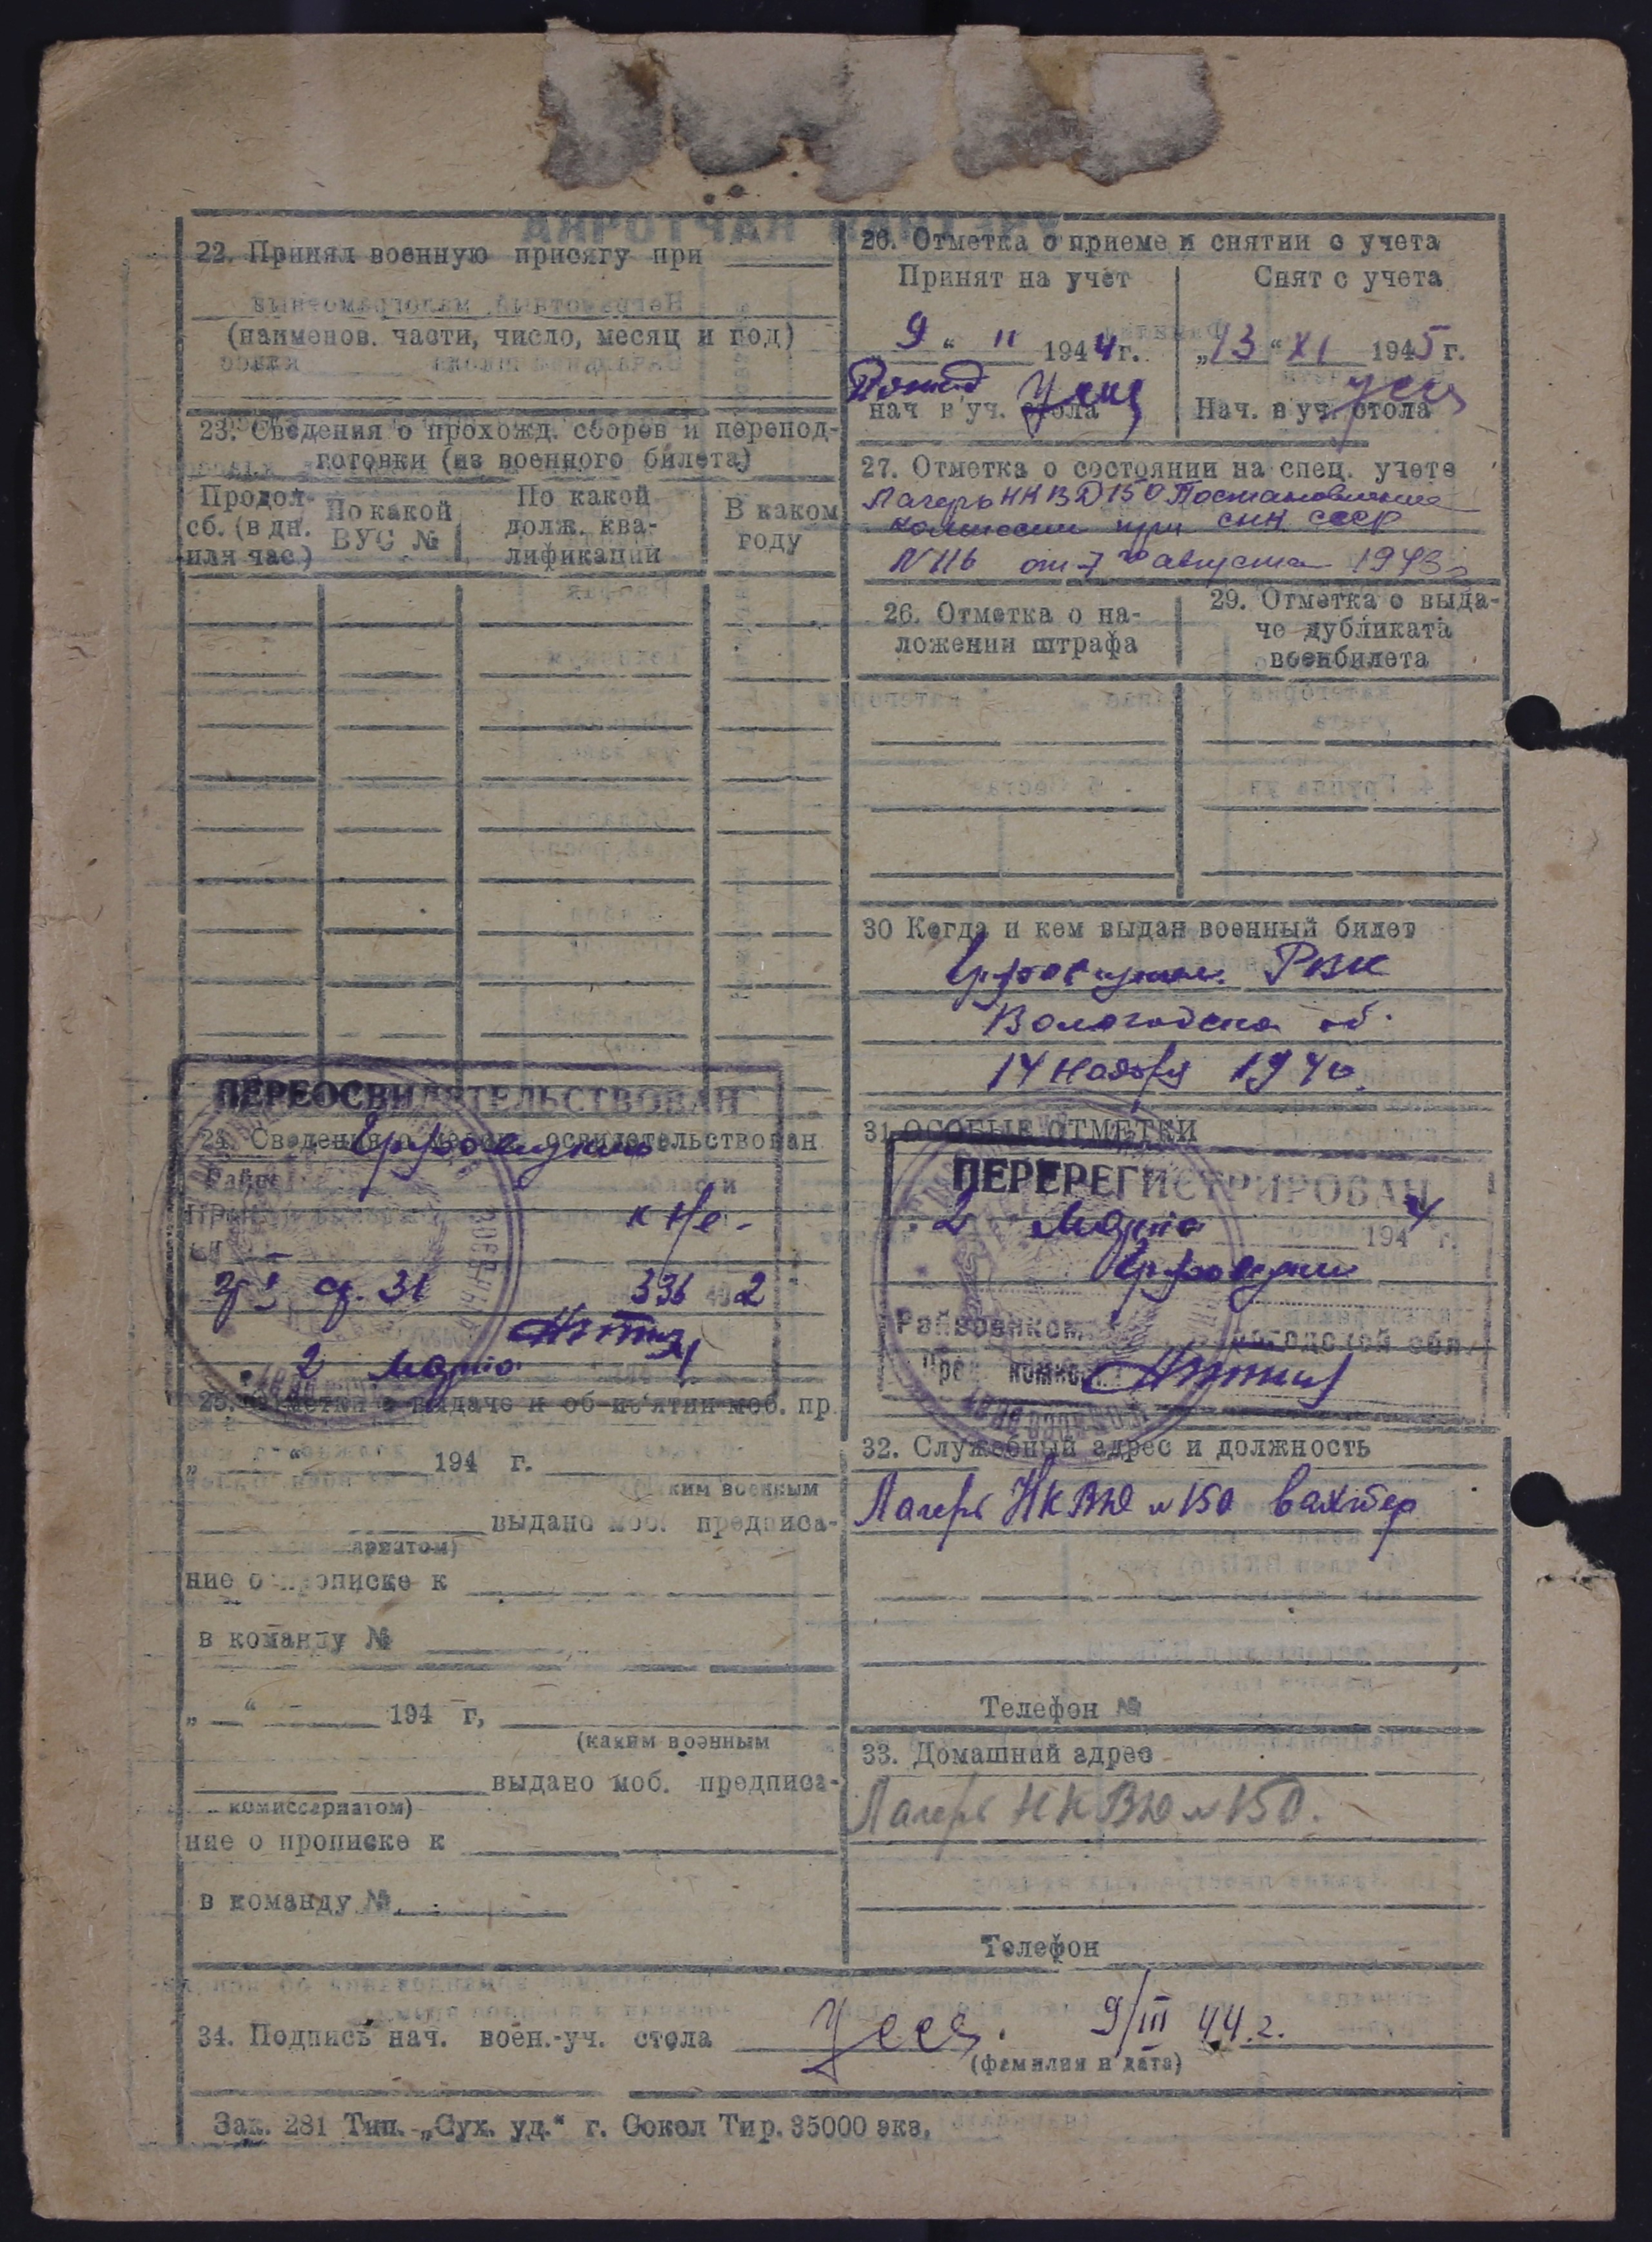 22. Принял военную присягу при
(наименов. части, число, месяц и год)
23. Сведения о прохожд. сборов и перепод-
готовки (из военного билета)
Продол. сб. (в дн. или час) По какой ВУС № По какой долж. ква- лификации В каком году
ПЕРЕОСВИДЕТЕЛЬСТВОВАН
24. Сведения о освидетельствован.
гр. I ст. 31 336 2
2 Марта
25. Отметки о выдаче и об из'ятии моб. пр.
„ “ 194 г.
ким военным
выдано моб. предписа-
ариатом)
ние о прописке к
в команду №
„ “ 194 г,
(каким военным
выдано моб. предписа-
комиссариатом)
ние о прописке к
в команду №
26. Отметка о приеме и снятии с учета
Принят на учет Снят с учета
9 “ II 1944 г. „13 “ XI 1945 г.
нач в уч. стола Нач. в уч. стола
27. Отметка о состоянии на спец. учете
Лагерь НКВД 150 Постановление
комиссии при СНК СССР
N 116 от 7го августа 1943 г
26. Отметка о на-
ложении штрафа
29. Отметка о выда-
че дубликата
военбилета
30 Когда и кем выдан военный билет
Грязовецким РВК
Вологодска об.
14 ноября 1940
31 ОСОБЫЕ ОТМЕТКИ
ПЕРЕРЕГИСТРИРОВАН
2 Марта 1944 г.
Грязовецким
Райвоенком Вологодской обл.
32. Служебный адрес и должность
Лагерь НКВД № 150 вахтер
Телефон №
33. Домашний адрес
Лагерь НКВД № 150.
Телефон
34. Подпись нач. воен.-уч. стола 9/III 44.г.
(фамилия и дата)
Зак. 281 Тип. „Сух. уд.“ г. Сокол Тир. 35000 экз.